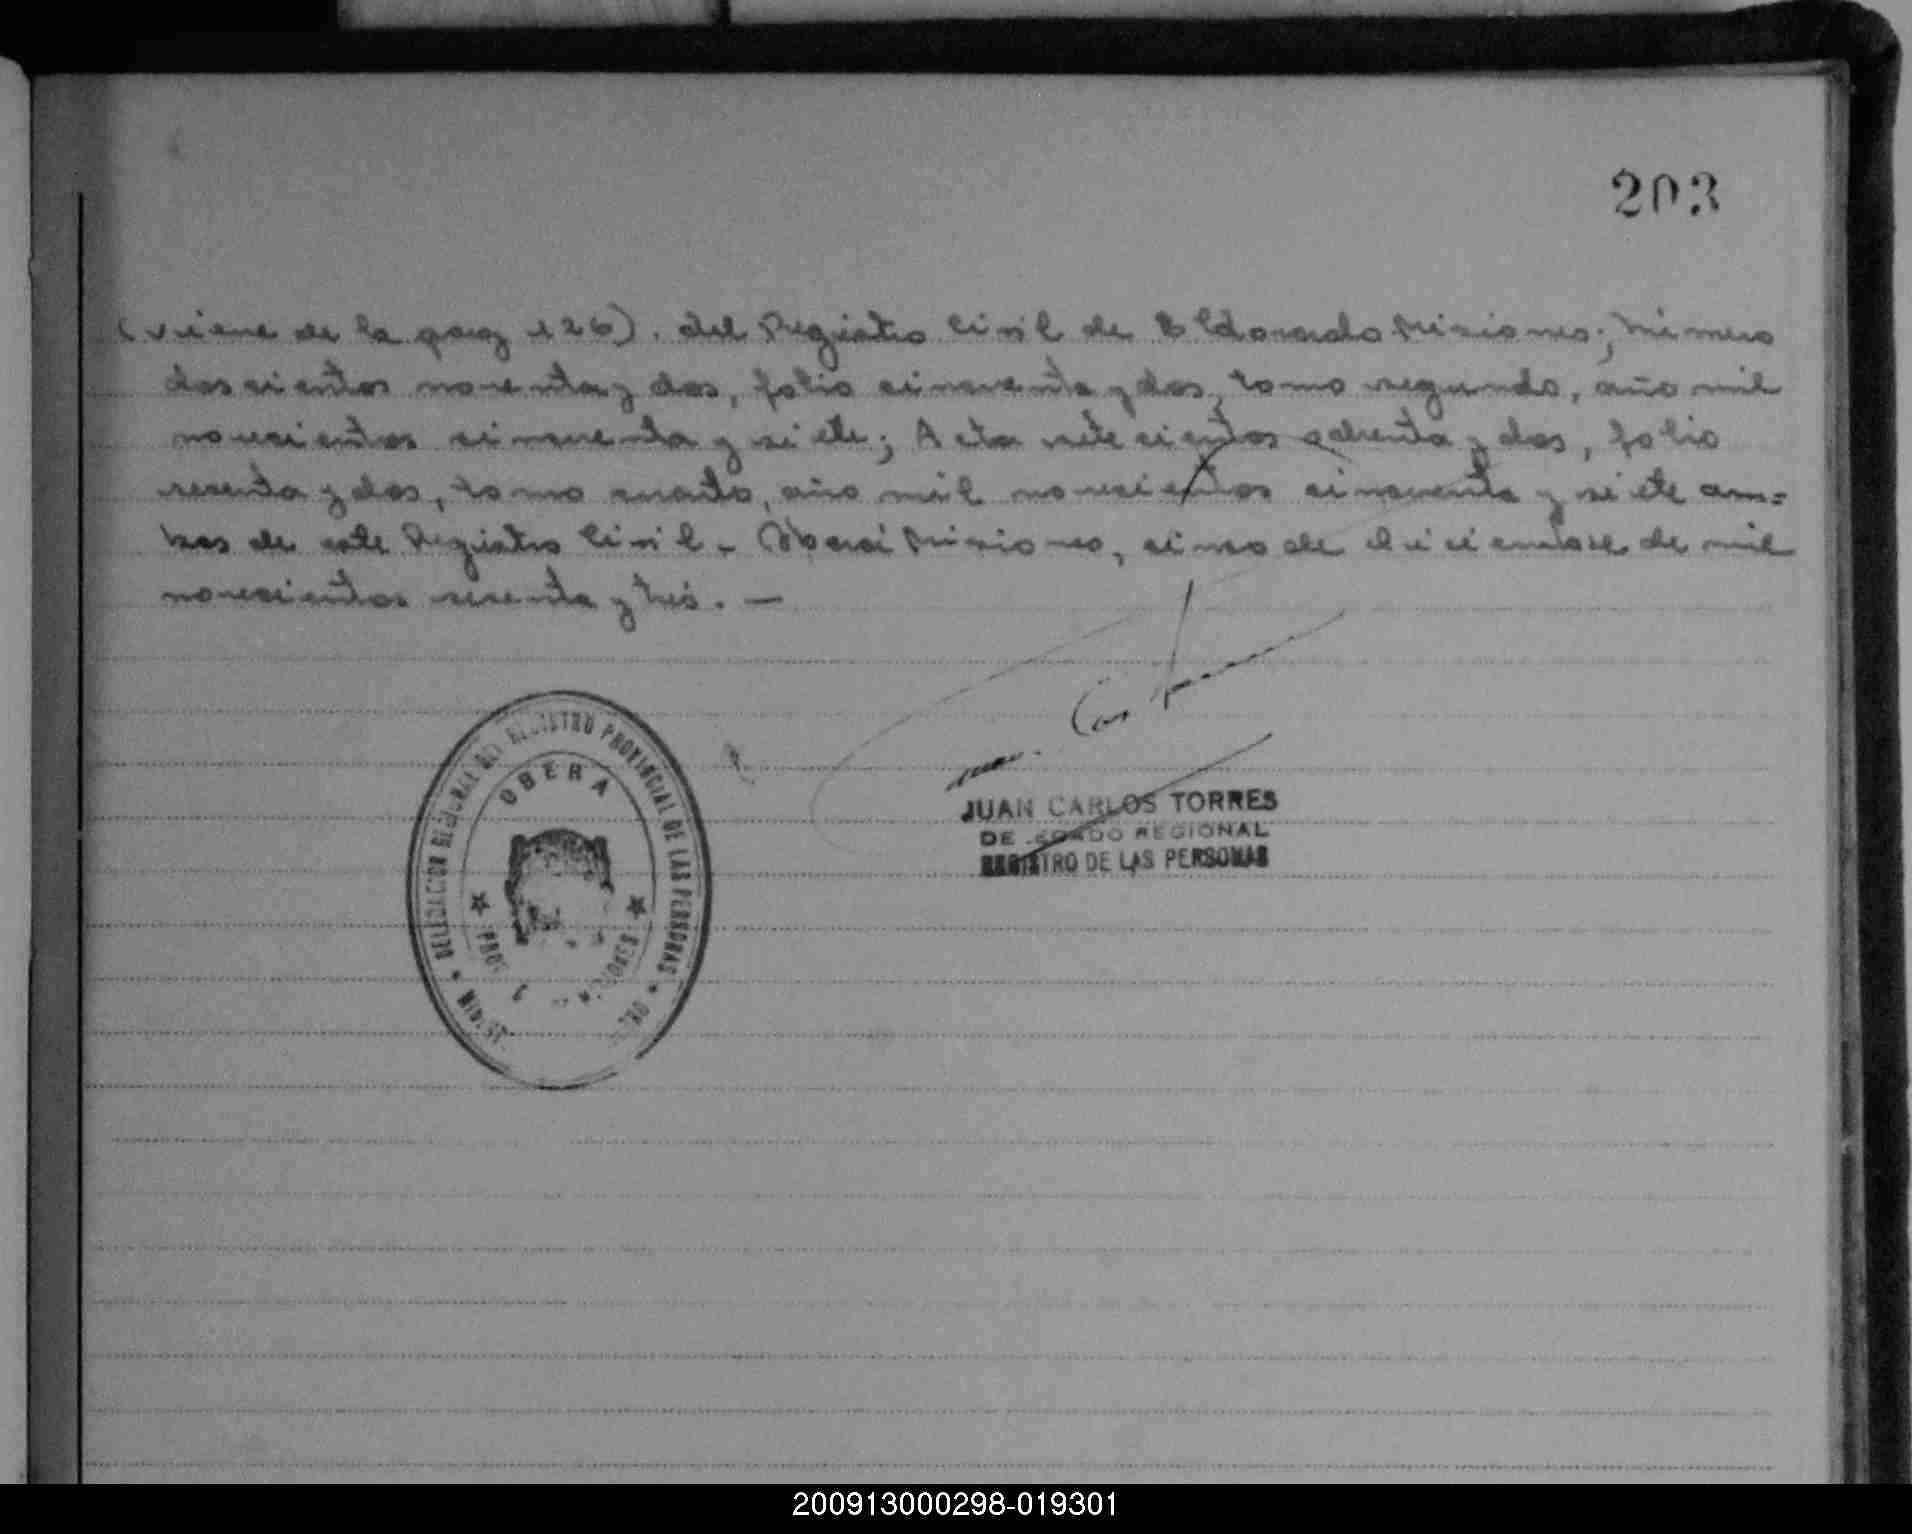 203
(viene de la pag 126). del Registro Civil de Eldorado Misiones; Número
doscientos noventa y dos, folio cincuenta y dos, tomo segundo, año mil
novecientos cincuenta y siete; Acta setecientos ochenta y dos, folio
sesenta y dos, tomo cuarto, año mil novecientos cincuenta y siete am=
bos de este Registro Civil.- Oberá Misiones, cinco de diciembre de mil
novecientos sesenta y trés. —
DELEGACION REGIONAL DEL REGISTRO PROVINCIAL DE LAS PERSONAS
OBERA
JUAN CARLOS TORRES
REGIONAL
REGISTRO DE LAS PERSONAS
200913000298-019301